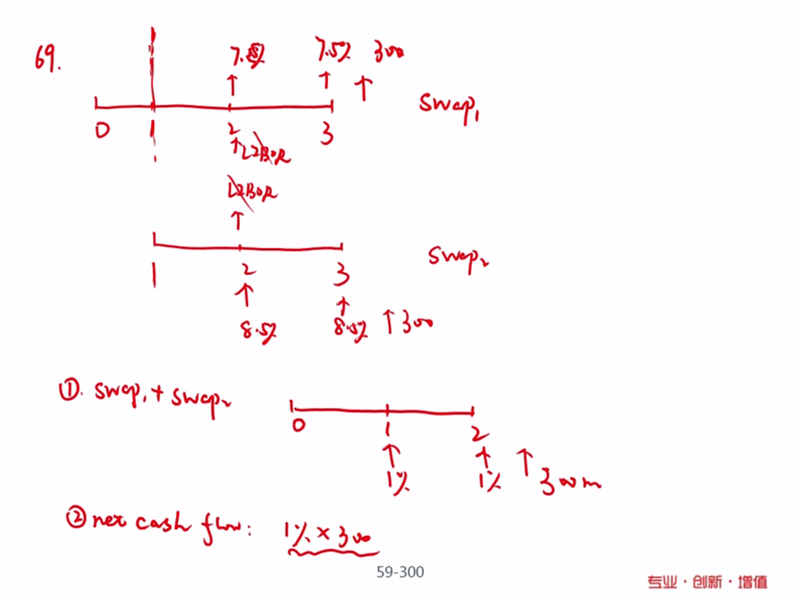 69.
7.5% 7.5% 300
0 1 2 3 swap₁
LIBOR
LIBOR
1 2 3 swap₂
8.5% 8.5% 300
①. swap₁ + swap₂
0 1 2
1% 1% 300m
② net cash flow: 1% × 300
59-300
专业·创新·增值